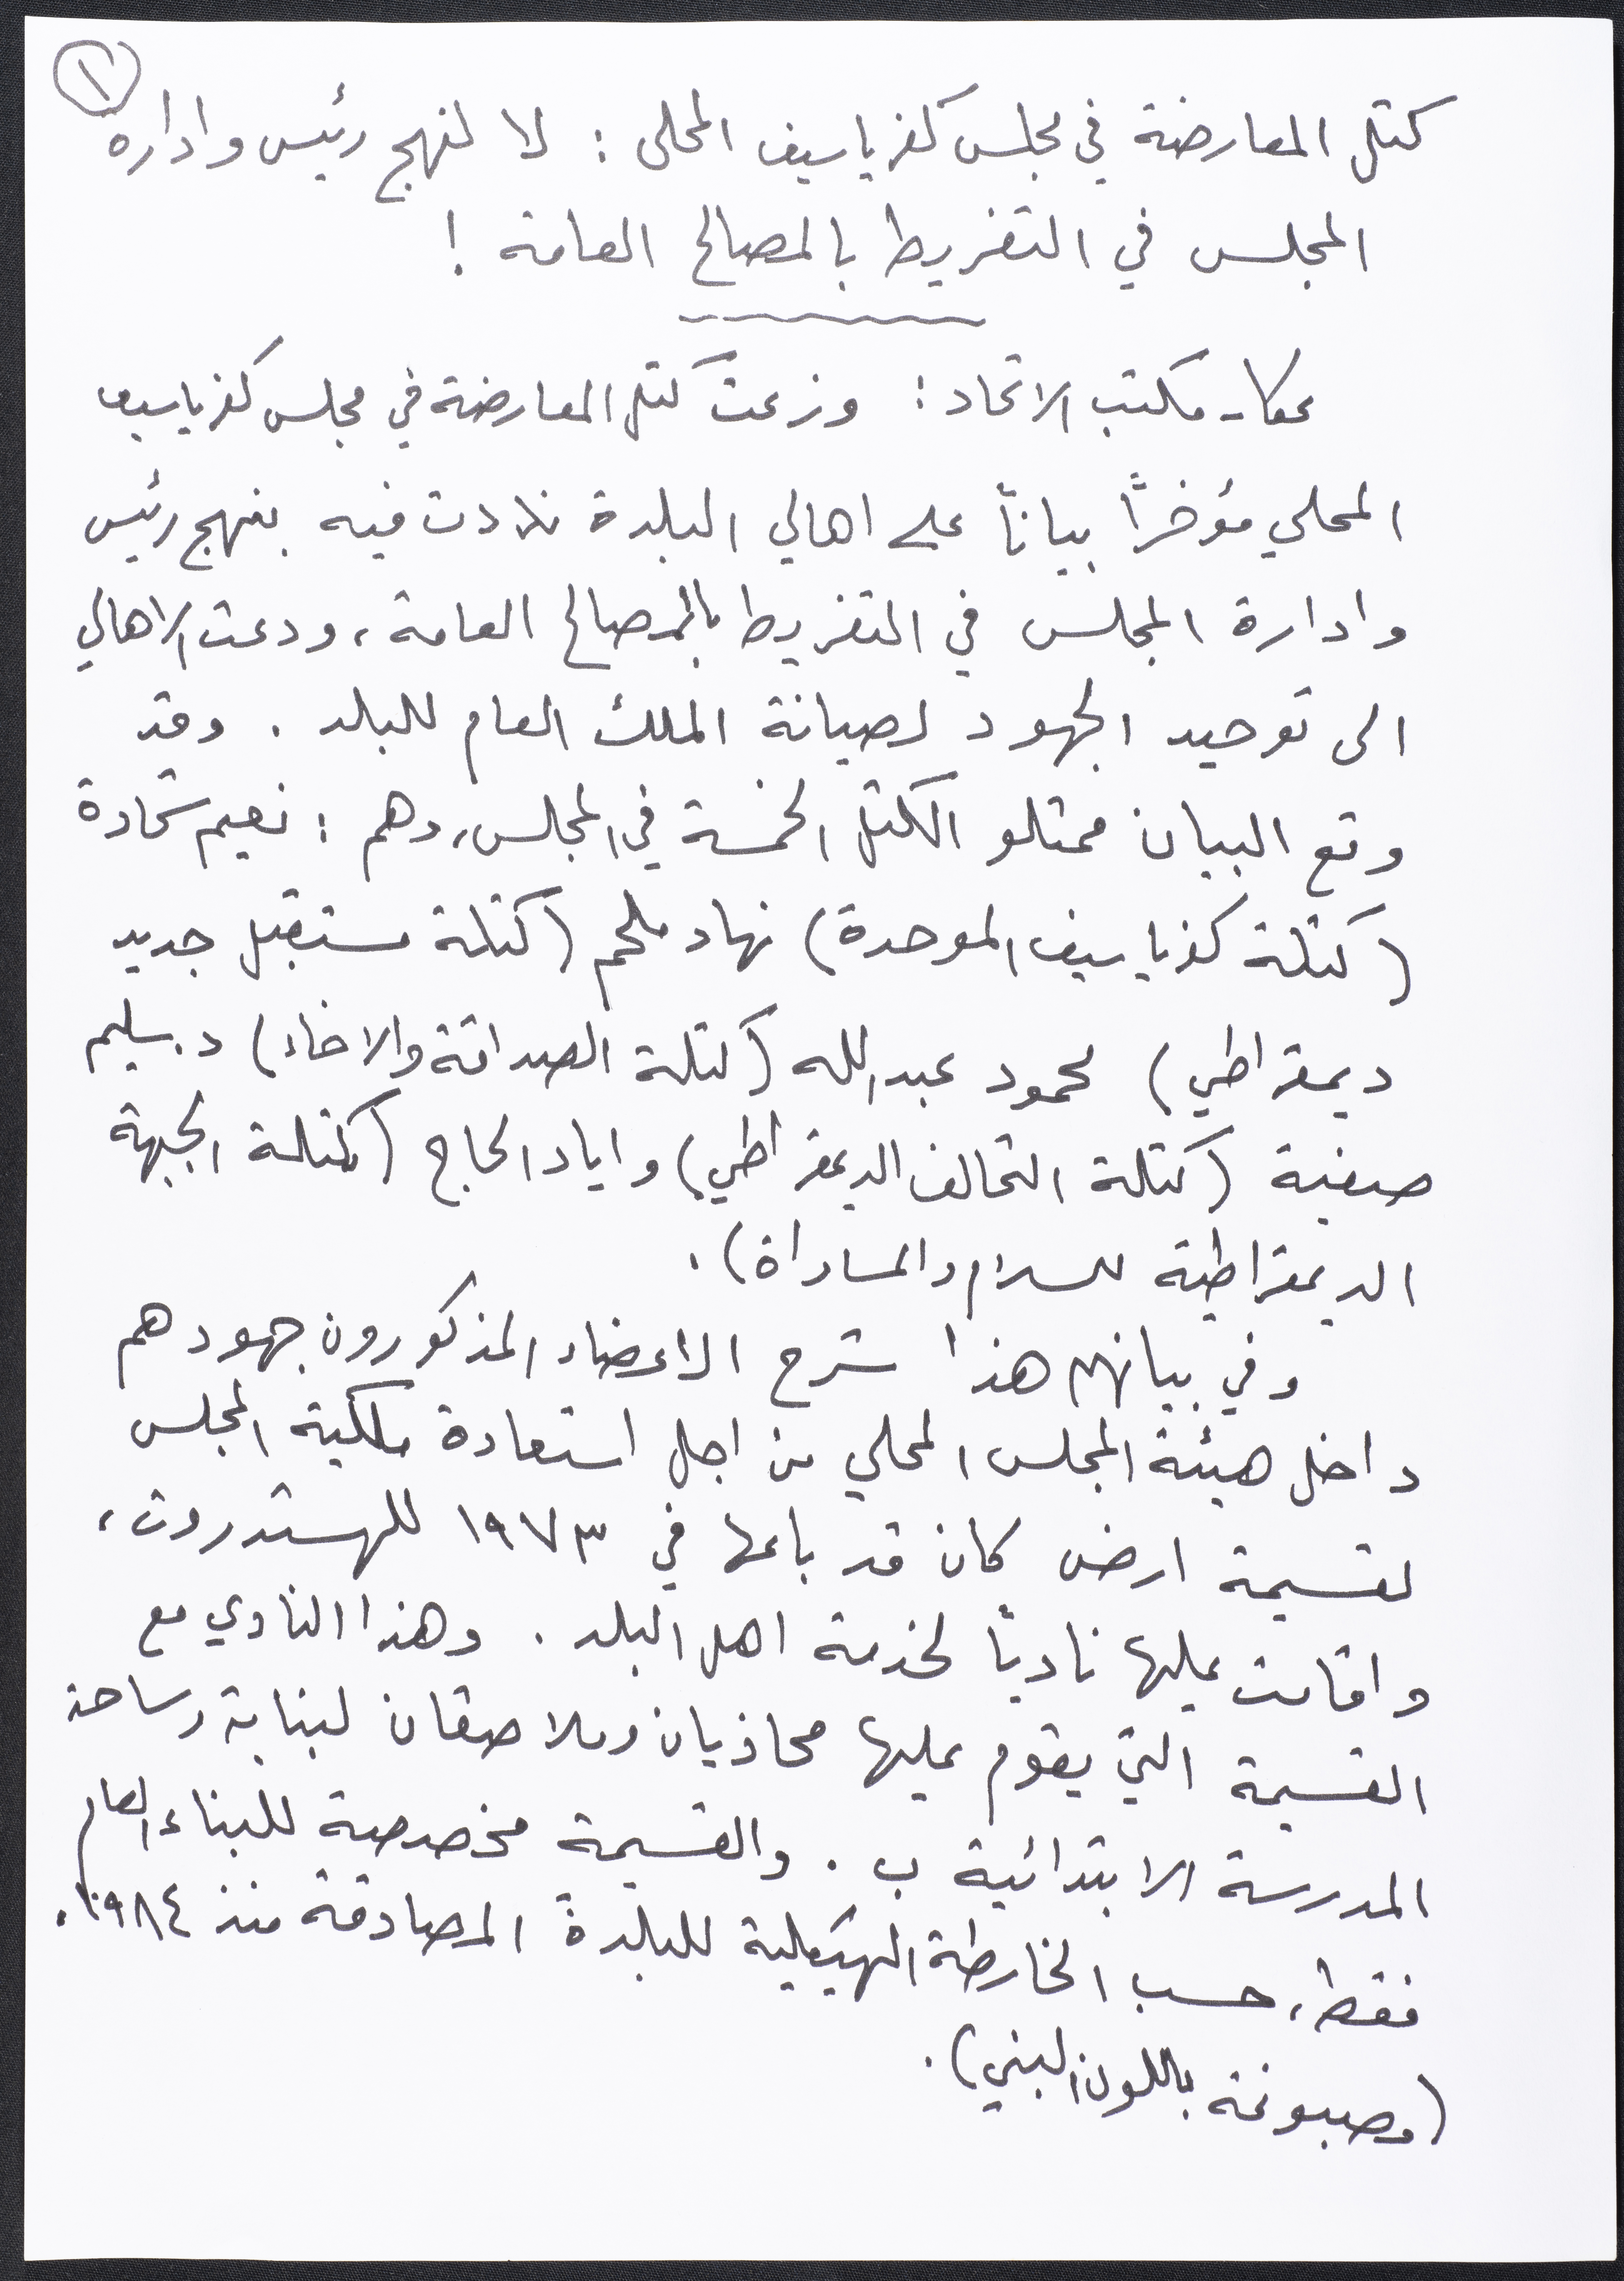 ١
كتل المعارضة في مجلس كفرياسيف المحلي : لا لنهج رئيس وادارة
المجلس في التفريط بالمصالح العامة !
عكا - مكتب الاتحاد : وزعت كتل المعارضة في مجلس كفرياسيف
المحلي مؤخرًا بيانًا على اهالي البلدة نددت فيه بنهج رئيس
وادارة المجلس في التفريط بالمصالح العامة ، ودعت الاهالي
الى توحيد الجهود لصيانة الملك العام للبلد . وقد
وقع البيان ممثلو الكتل الخمسة في المجلس، وهم : نعيم شحادة
(كتلة كفرياسيف الموحدة) نهاد ملحم (كتلة مستقبل جديد
ديمقراطي) محمود عبدالله (كتلة الصداقة والاخاء) د. سليم
صفية (كتلة التحالف الديمقراطي) واياد الحاج (كتلة الجبهة
الديمقراطية للسلام والمساواة) .
وفي بيانهم هذا شرح الاعضاء المذكورون جهودهم
داخل هيئة المجلس المحلي من اجل استعادة ملكية المجلس
لقسيمة ارض كان قد باعها في ١٩٧٣ للهستدروت ،
واقامت عليها ناديًا لخدمة اهل البلد . وهذا النادي مع
القسيمة التي يقوم عليها محاذيان وملاصقان لبناية وساحة
المدرسة الابتدائية ب . والقسيمة مخصصة للبناء العام
فقط ، حسب الخارطة الهيكلية للبلدة المصادقة منذ ١٩٨٤ .
(مصبوغة باللون البني) .